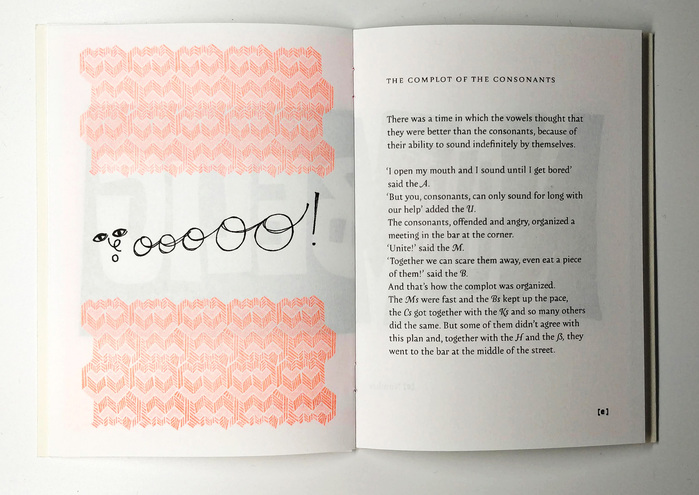 ooooo!
THE COMPLOT OF THE CONSONANTS
There was a time in which the vowels thought that
they were better than the consonants, because of
their ability to sound indefinitely by themselves.
‘I open my mouth and I sound until I get bored’
said the A.
‘But you, consonants, can only sound for long with
our help’ added the U.
The consonants, offended and angry, organized a
meeting in the bar at the corner.
‘Unite!’ said the M.
‘Together we can scare them away, even eat a piece
of them!’ said the B.
And that's how the complot was organized.
The Ms were fast and the Bs kept up the pace,
the Cs got together with the Ks and so many others
did the same. But some of them didn't agree with
this plan and, together with the H and the ß, they
went to the bar at the middle of the street.
[e]